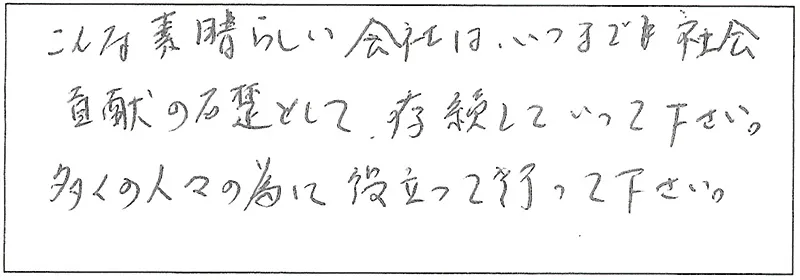 こんな素晴らしい会社は、いつまでも社会
貢献の石礎として、存続していって下さい。
多くの人々の為に役立って行って下さい。